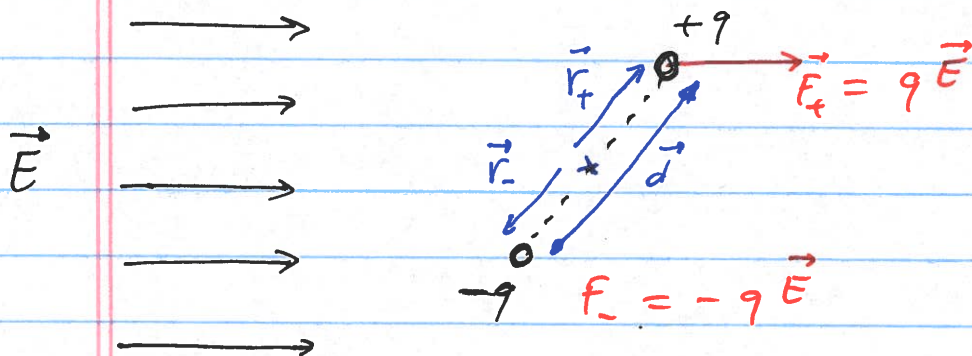 +q
r⃗₊
F⃗₊ = q E⃗
E⃗
r⃗₋
d⃗
-q
F₋ = - q E⃗